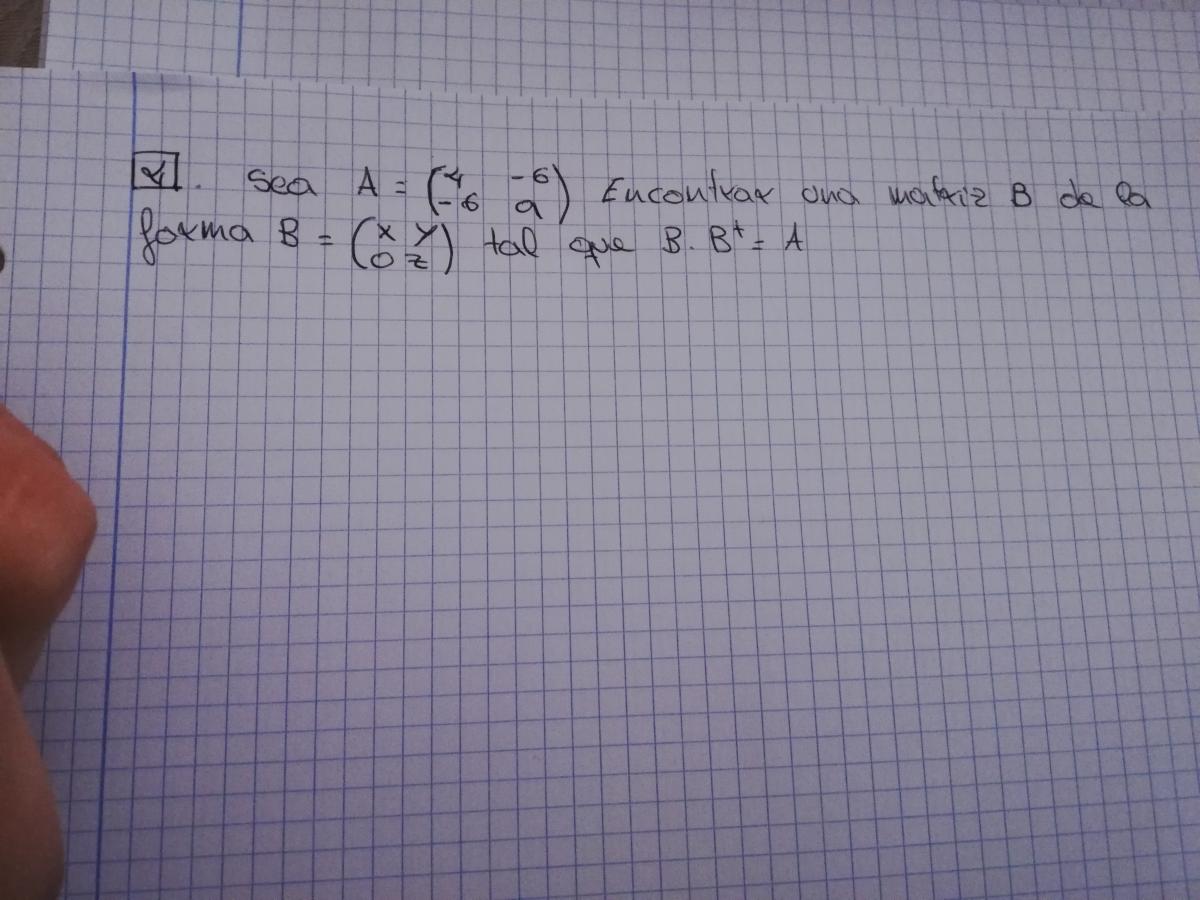 . Sea A = (4 -6
-6 9) Encontrar una matriz B de la
forma B = (x y
0 z) tal que B · Bᵗ = A